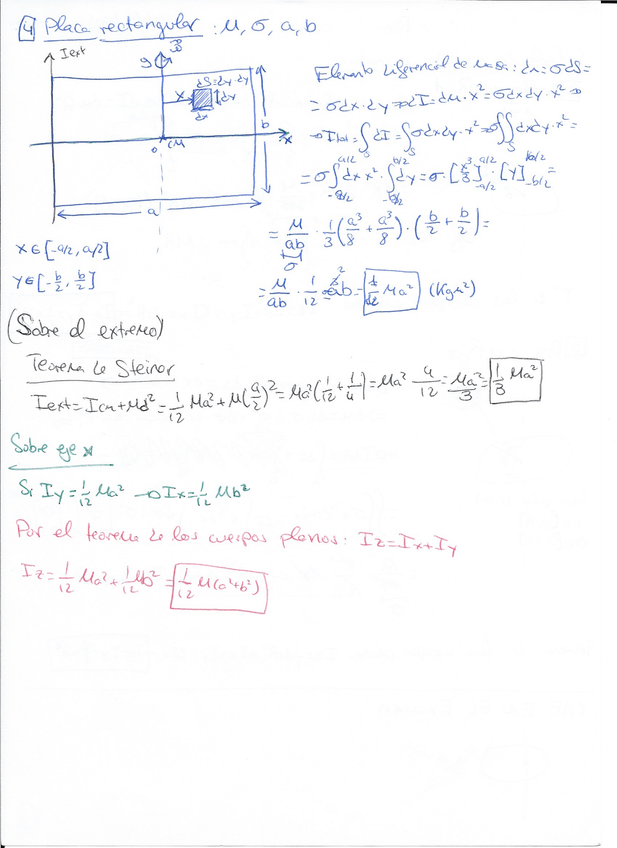 4 Placa rectangular: M, σ, a, b
Iext
y
dS=dx·dy
x
dy
dx
b
x
0 CM
a
Elemento diferencial de masa: dm=σdS=
=σdx·dy ⇒ dI=dM·x²=σdxdy·x² ⇒
⇒ Itot=∫_S dI=∫_S σdxdy·x² ⇒ σ∬_S dxdy·x²=
=σ∫_{-a/2}^{a/2} dx x²·∫_{-b/2}^{b/2} dy=σ·[x³/3]_{-a/2}^{a/2}·[y]_{-b/2}^{b/2}=
=M/ab·1/3(a³/8+a³/8)·(b/2+b/2)=
σ
x∈[-a/2, a/2]
y∈[-b/2, b/2]
=M/ab·1/12 a³b=1/12 Ma² (Kgm²)
(Sobre el extremo)
Teorema de Steiner
Iext=Icm+Md²=1/12 Ma²+M(a/2)²=Ma²(1/12+1/4)=Ma² 4/12=Ma²/3=1/3 Ma²
Sobre eje x
Si Iy=1/12 Ma² → Ix=1/12 Mb²
Por el teorema de los cuerpos planos: Iz=Ix+Iy
Iz=1/12 Ma²+1/12 Mb²=1/12 M(a²+b²)